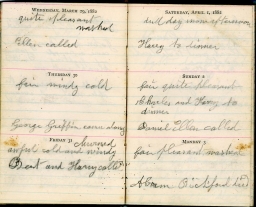 WEDNESDAY, MARCH 29, 1882
quite pleasant
washed
Ellen called
THURSDAY 30
fair windy cold
George Griffin came
FRIDAY 31
awful cold and windy
Bent and Harry called
SATURDAY, APRIL 1, 1882
dull day snow afternoon
Harry to dinner
SUNDAY 2
fair quite pleasant
Charles and Harry to
dinner
Daniel Ellen called
MONDAY 3
fair pleasant washed
Abram Bickford died